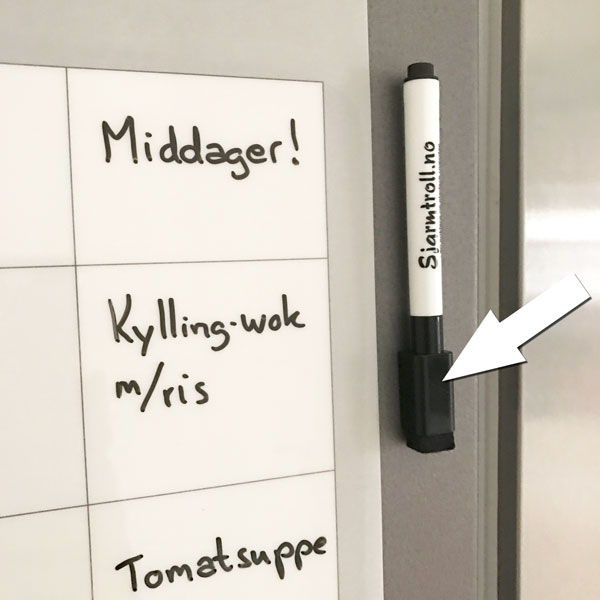 Middager!
Kylling-wok
m/ris
Tomatsuppe
Sjarmtroll.no